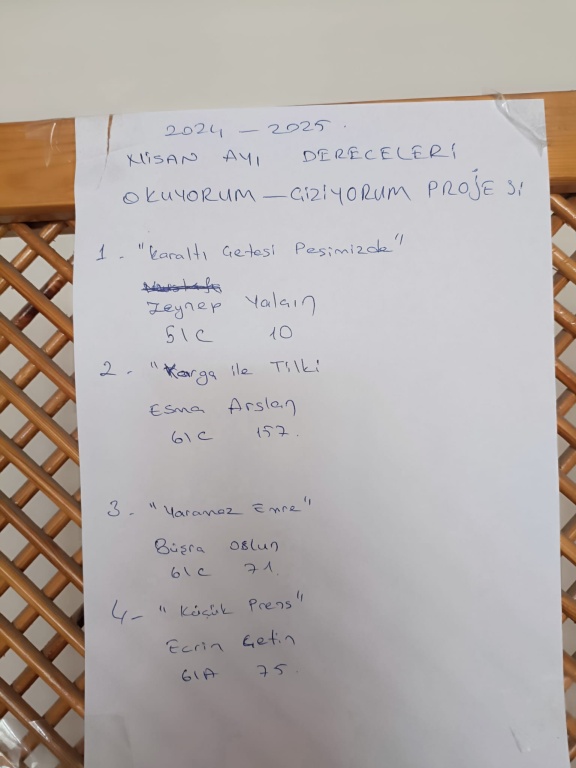 2024 – 2025.
NİSAN AYI DERECELERİ
OKUYORUM – ÇİZİYORUM PROJESİ
1 - "Karaltı Çetesi Peşimizde"
Zeynep Yalçın
5/C 10
2 - "Karga ile Tilki
Esma Arslan
6/C 157.
3 - "Yaramaz Emre"
Büşra
6/C 71.
4 - "Küçük Prens"
Ecrin Çetin
6/A 75.